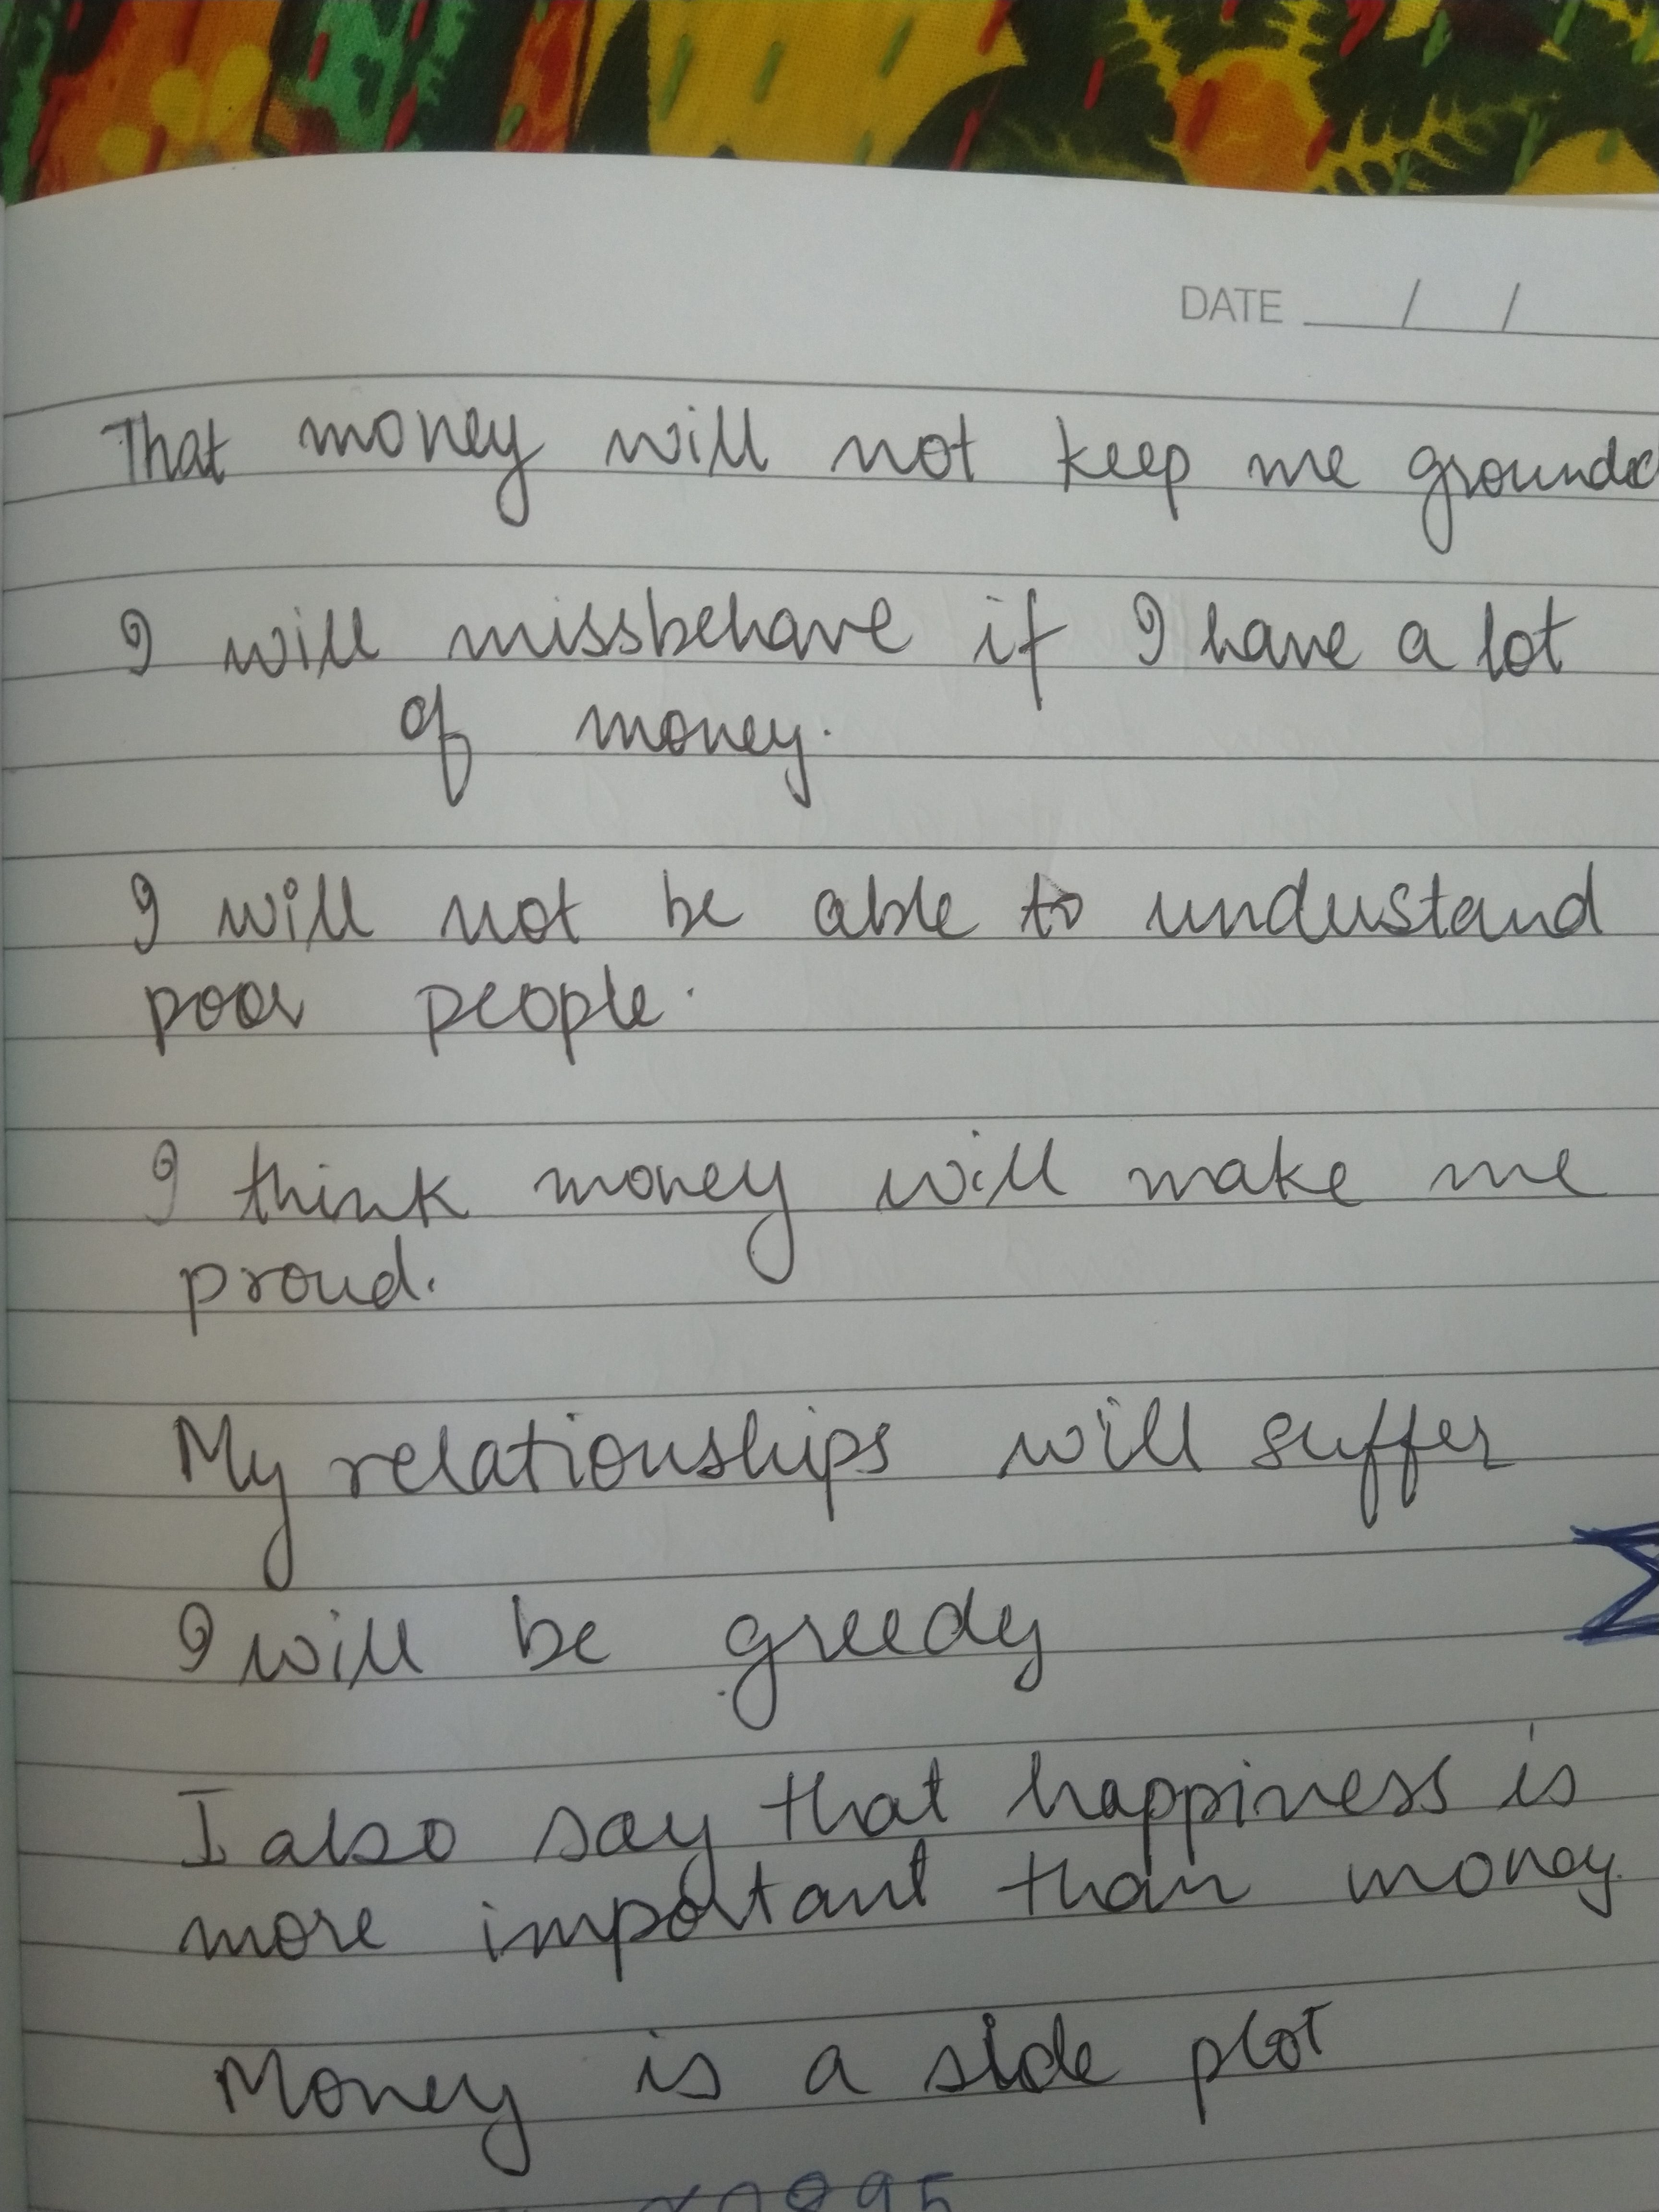 DATE / /
That money will not keep me grounde
I will missbehave if I have a lot
of money.
I will not be able to understand
poor people.
I think money will make me
proud.
My relationships will suffer
I will be greedy
I also say that happiness is
more important than money.
Money is a side plot